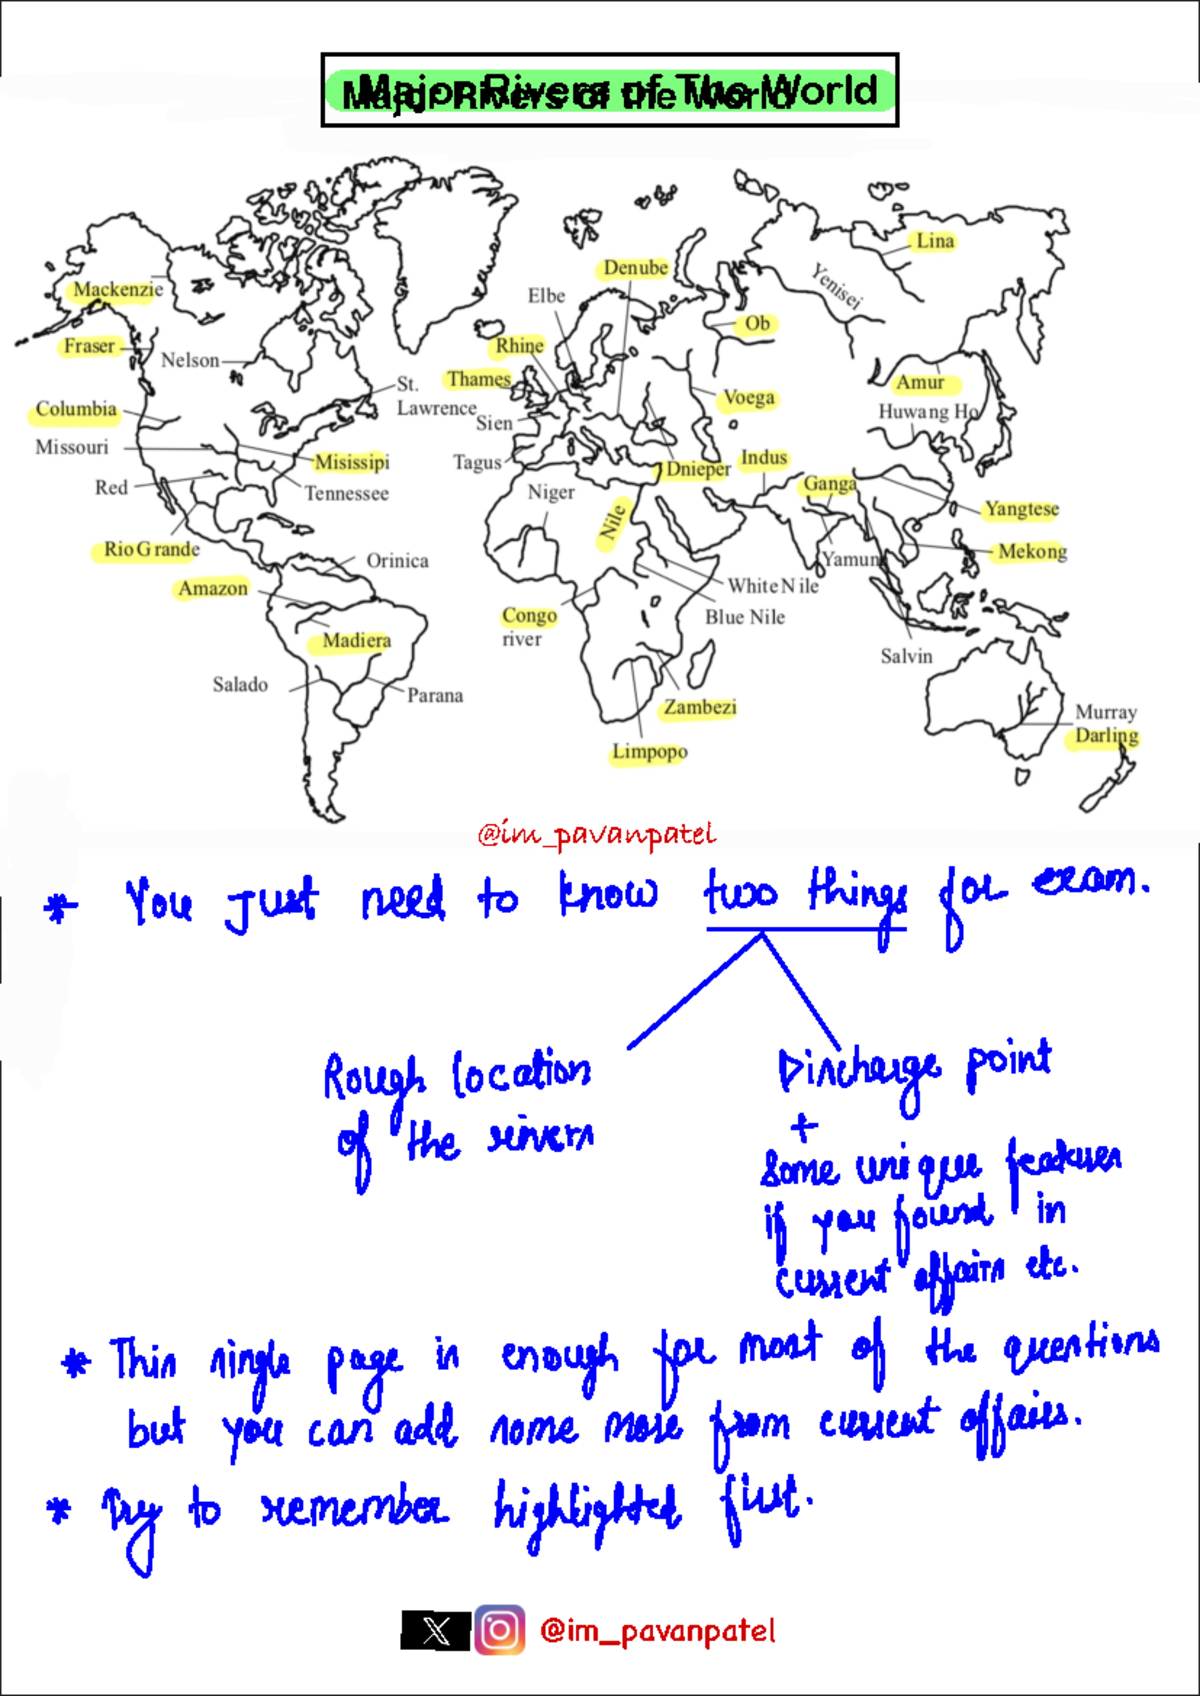 Major Rivers of The World
Major Rivers of the World
Lina
Denube
Yenisei
Mackenzie
Elbe
Ob
Fraser
Rhine
Nelson
Thames
St.
Lawrence
Amur
Voega
Columbia
Huwang Ho
Sien
Missouri
Misissipi
Tagus
Dnieper
Indus
Red
Tennessee
Niger
Ganga
Nile
Yangtese
Rio Grande
Mekong
Orinica
Yamun
Amazon
White Nile
Congo
river
Blue Nile
Madiera
Salvin
Salado
Parana
Zambezi
Murray
Darling
Limpopo
@im_pavanpatel
* You just need to know two things for exam.
Rough location
of the rivers
Discharge point
+
Some unique features
if you found in
current affairs etc.
* This single page is enough for most of the questions
but you can add some more from current affairs.
* Try to remember highlighted first.
X @im_pavanpatel